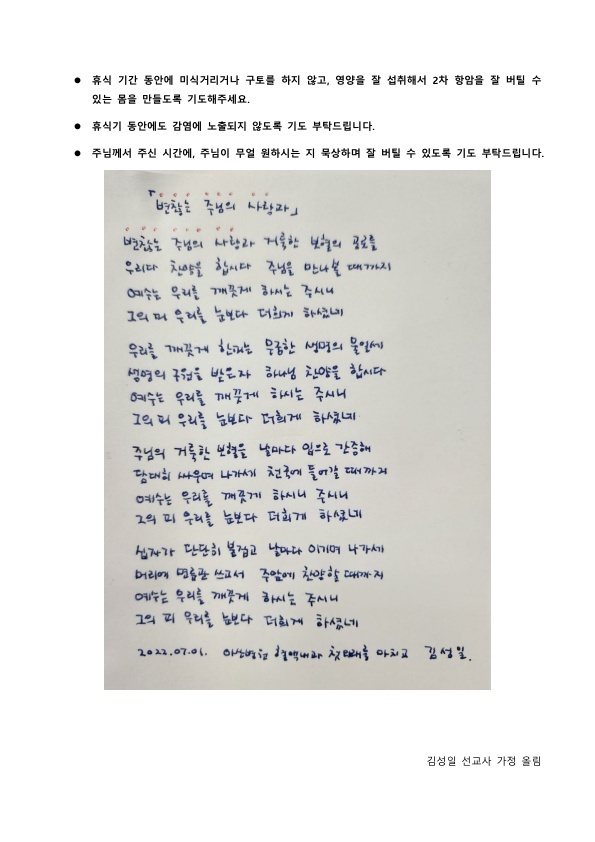 ● 휴식 기간 동안에 미식거리거나 구토를 하지 않고, 영양을 잘 섭취해서 2차 항암을 잘 버틸 수
있는 몸을 만들도록 기도해주세요.
● 휴식기 동안에도 감염에 노출되지 않도록 기도 부탁드립니다.
● 주님께서 주신 시간에, 주님이 무얼 원하시는 지 묵상하며 잘 버틸 수 있도록 기도 부탁드립니다.
「변찮는 주님의 사랑과」
변찮는 주님의 사랑과 거룩한 보혈의 공로를
우리다 찬양을 합시다 주님을 만나볼 때까지
예수는 우리를 깨끗게 하시는 주시니
그의 피 우리를 눈보다 더희게 하셨네
우리를 깨끗게 한피는 무궁한 생명의 물일세
생명의 구원을 받은자 하나님 찬양을 합시다
예수는 우리를 깨끗게 하시는 주시니
그의 피 우리를 눈보다 더희게 하셨네
주님의 거룩한 보혈을 날마다 입으로 간증해
담대히 싸우며 나가세 천국에 들어갈 때까지
예수는 우리를 깨끗게 하시니 주시니
그의 피 우리를 눈보다 더희게 하셨네
십자가 단단히 붙잡고 날마다 이기며 나가세
머리에 면류관 쓰고서 주앞에 찬양할 때까지
예수는 우리를 깨끗게 하시는 주시니
그의 피 우리를 눈보다 더희게 하셨네
2022.07.01. 아산병원 혈액내과 첫 를 마치고 김성일.
김성일 선교사 가정 올림